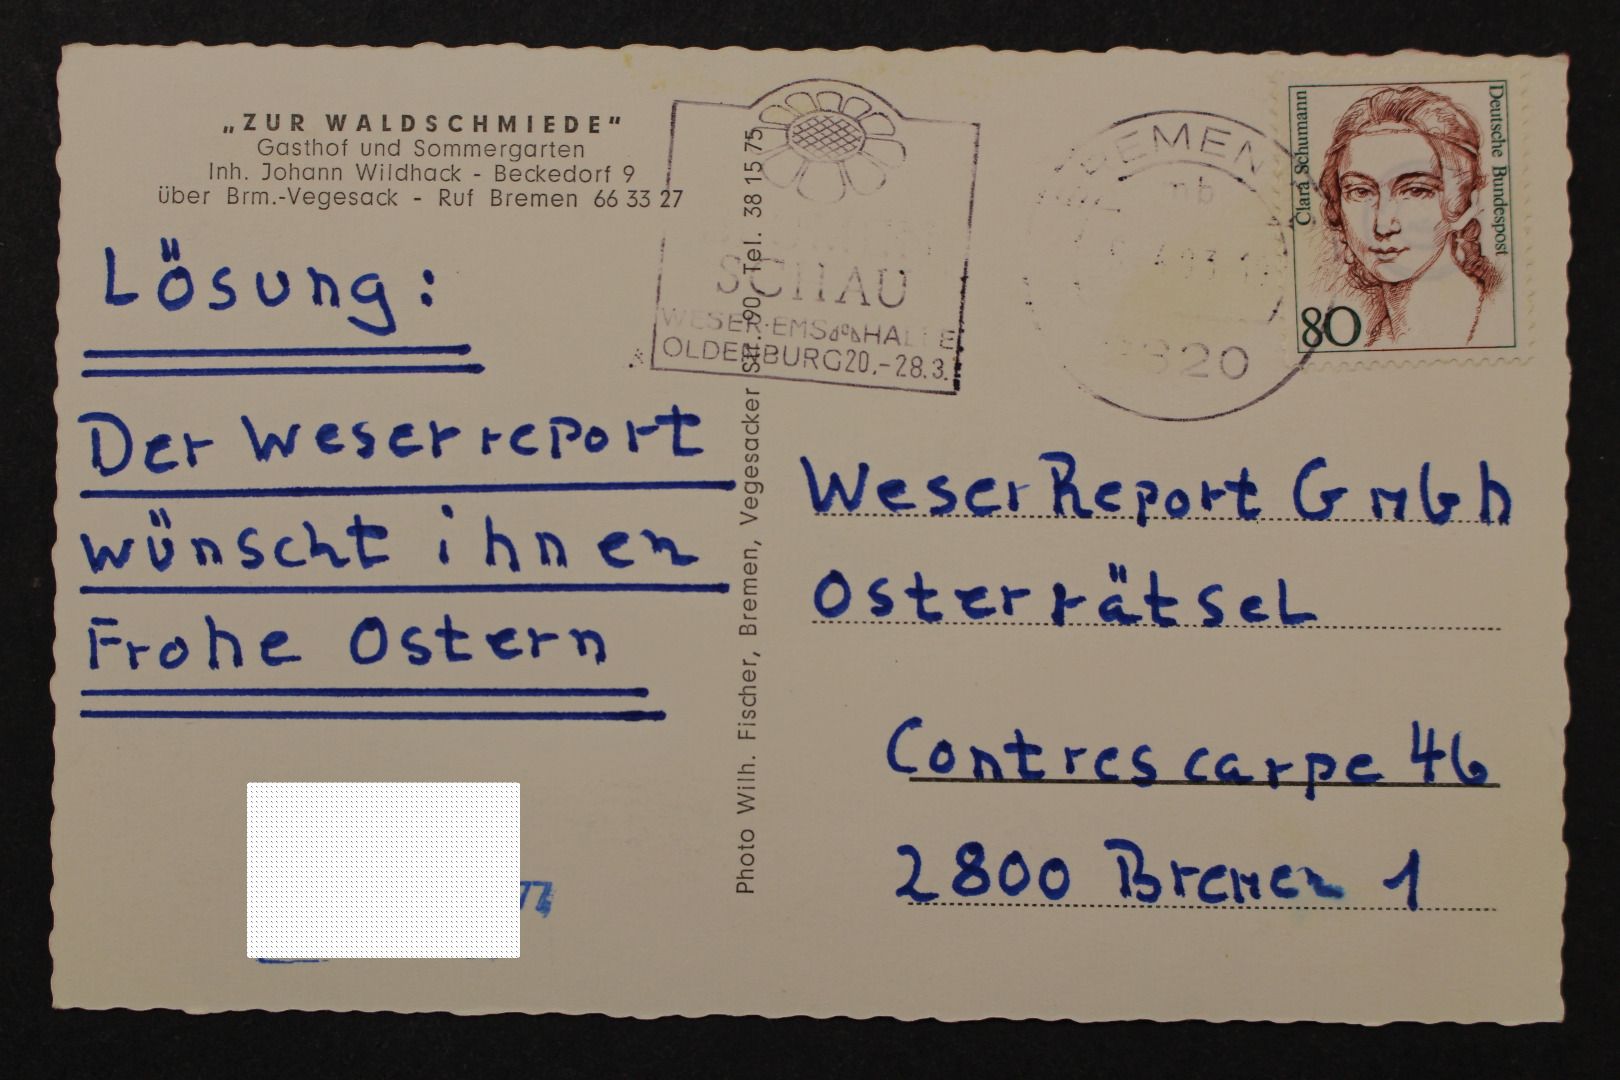 „ZUR WALDSCHMIEDE"
Gasthof und Sommergarten
Inh. Johann Wildhack - Beckedorf 9
über Brm.-Vegesack - Ruf Bremen 66 33 27
Lösung:
Der Weserreport
wünscht ihnen
Frohe Ostern
77
Photo Wilh. Fischer, Bremen, Vegesacker Str. 90, Tel. 38 15 75
SCHAU
WESER-EMS HALLE
OLDENBURG 20.-28.3.
BREMEN
mb
820
Clara Schumann
Deutsche Bundespost
80
WeserReport GmbH
Osterrätsel
Contrescarpe 46
2800 Bremen 1